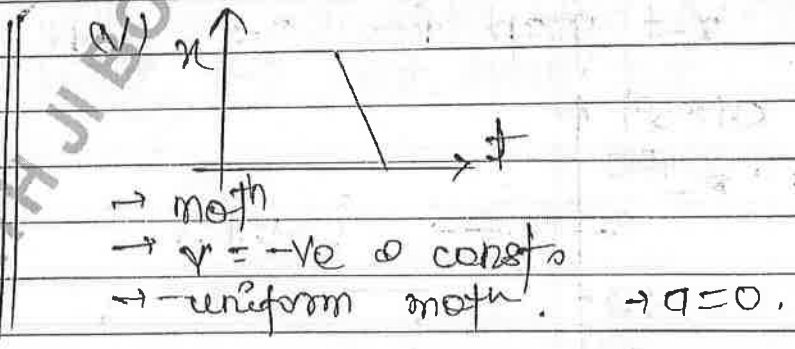 (V) x
t
→ motn
→ v = -ve & const.
→ uniform motn. → a=0.
H JI BO